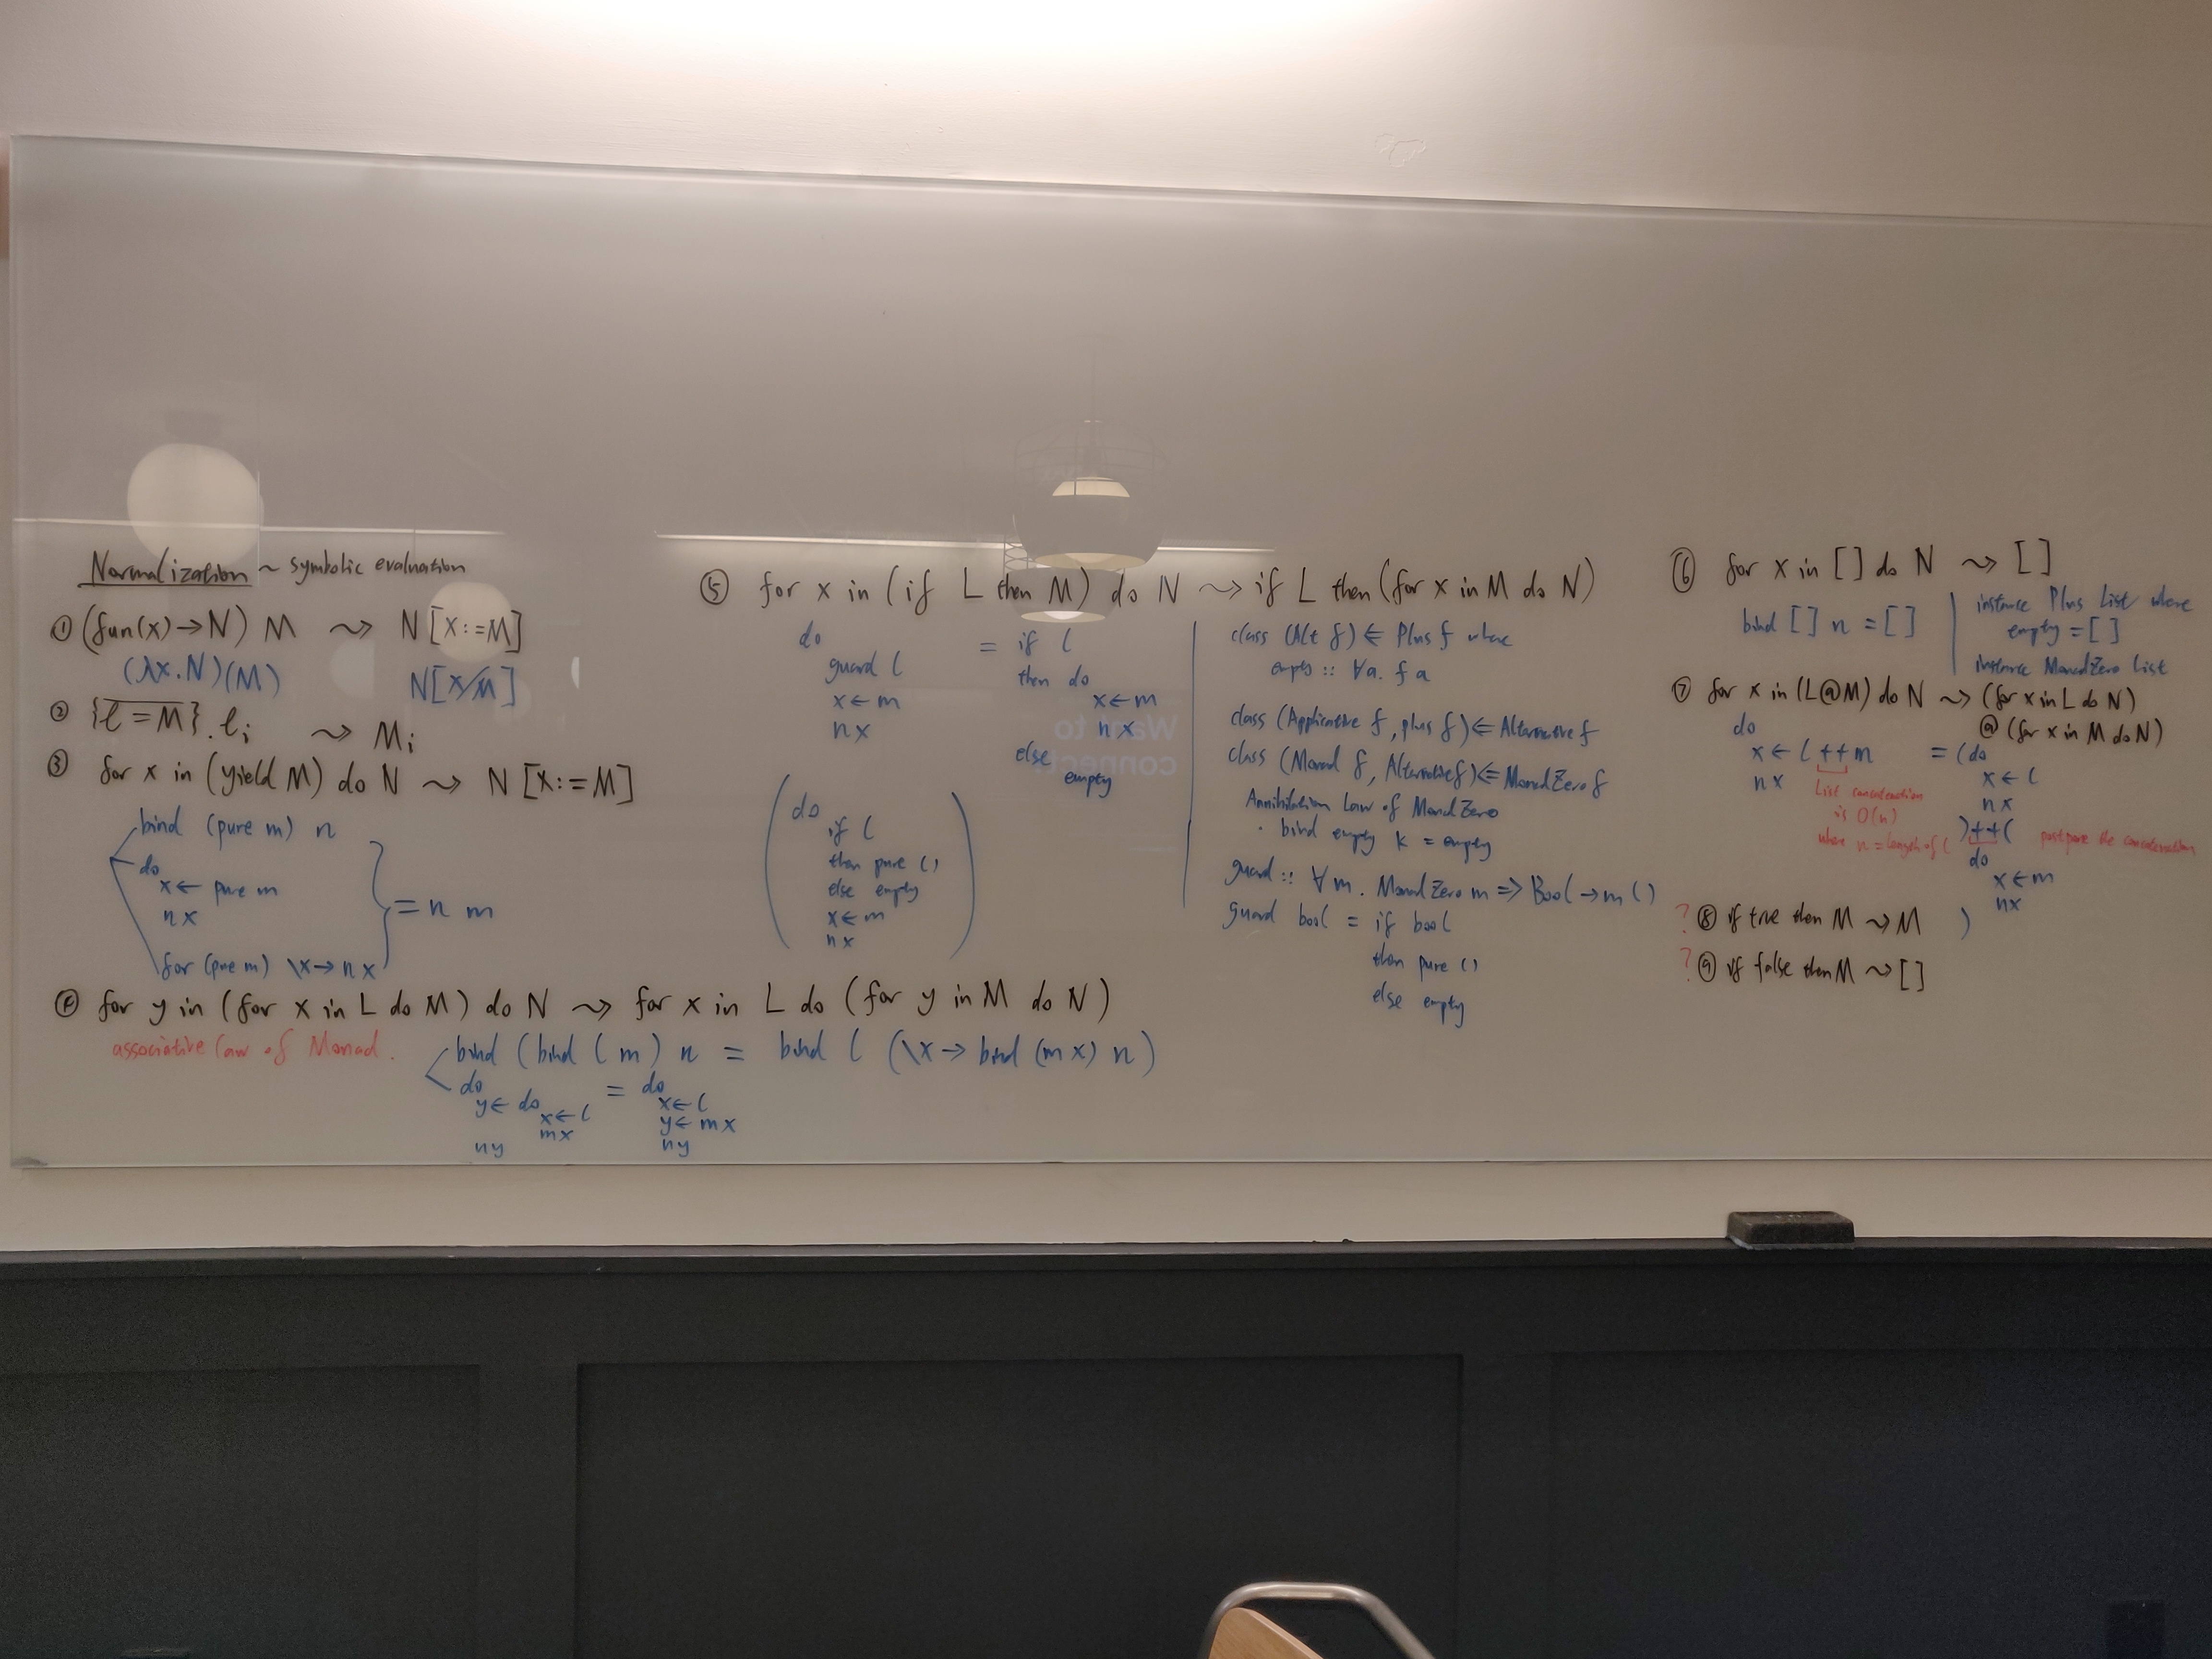 Normalization ~ symbolic evaluation
① (fun(x)→N) M ⇝ N[x:=M]
(λx.N)(M) N[x/M]
② {l=M}.li ⇝ Mi
③ for x in (yield M) do N ⇝ N[x:=M]
bind (pure m) n
do
x ← pure m
n x
for (pure m) \x→ n x
= n m
④ for y in (for x in L do M) do N ⇝ for x in L do (for y in M do N)
associative law of Monad.
bind (bind l m) n = bind l (\x → bind (m x) n)
do = do
y ← do x ← l
x ← l y ← m x
m x n y
n y
⑤ for x in (if L then M) do N ⇝ if L then (for x in M do N)
do = if l
guard l then do
x ← m x ← m
n x n x
else
empty
(do
if l
then pure ()
else empty
x ← m
n x)
class (Alt f) ⇐ Plus f where
empty :: ∀a. f a
class (Applicative f, plus f) ⇐ Alternative f
class (Monad f, Alternative f) ⇐ MonadZero f
Annihilation Law of MonadZero
· bind empty k = empty
guard :: ∀ m. MonadZero m => Bool → m ()
guard bool = if bool
then pure ()
else empty
⑥ for x in [] do N ⇝ []
bind [] n = []
instance Plus List where
empty = []
instance MonadZero List
⑦ for x in (L@M) do N ⇝ (for x in L do N)
@ (for x in M do N)
do
x ← l ++ m
n x
List concatenation
is O(n)
where n = length of l
= (do
x ← l
n x
) ++ ( postpone the concatenation
do
x ← m
n x
)
? ⑧ if true then M ⇝ M
? ⑨ if false then M ⇝ []
Want to
connect